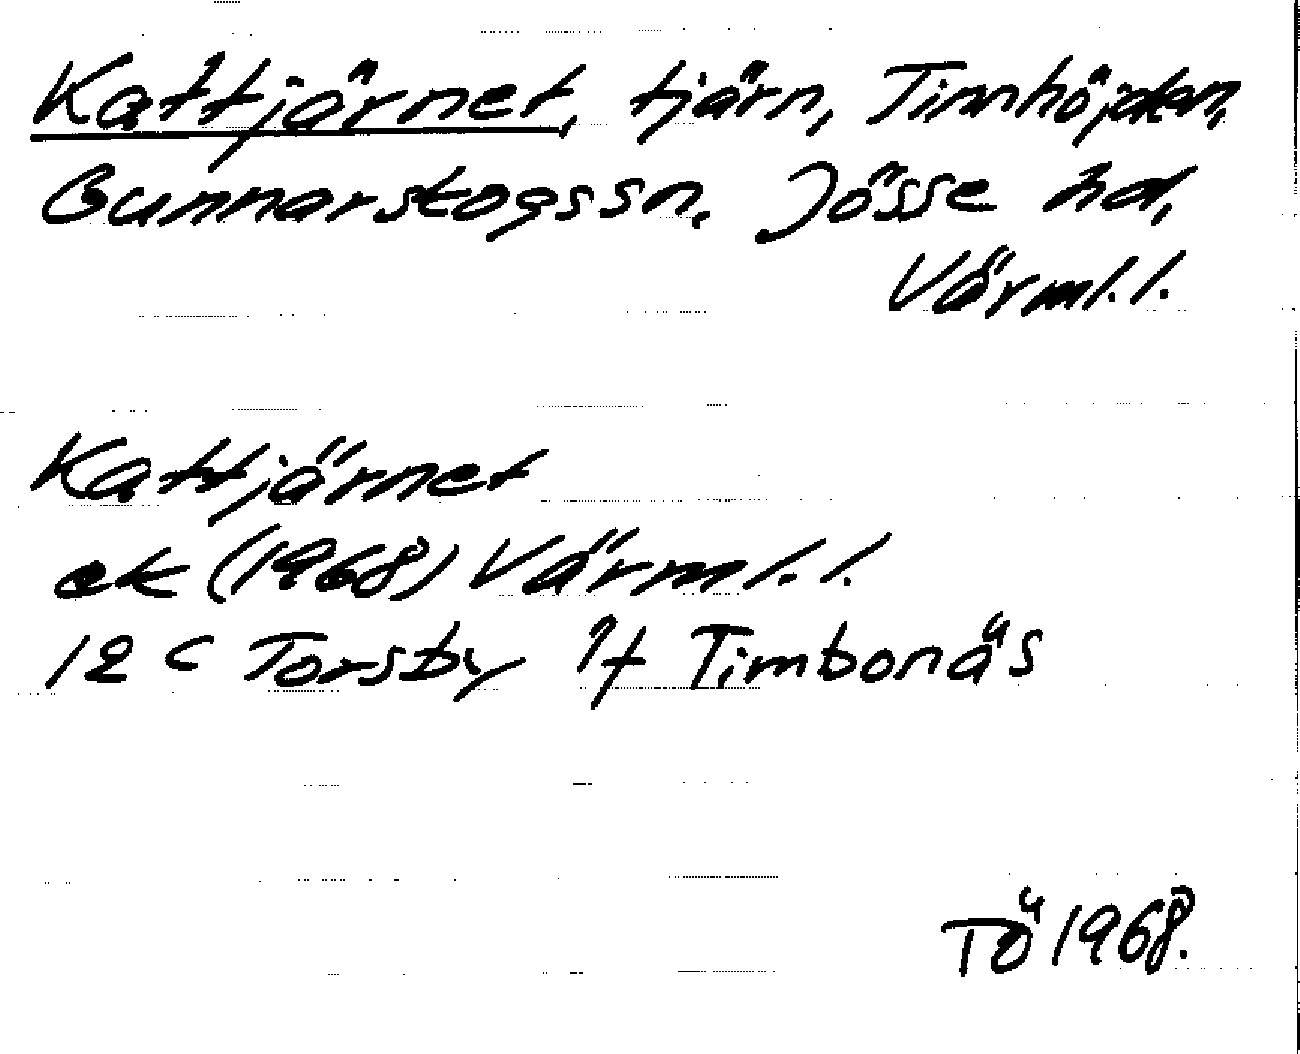 Kattjärnet, tjärn, Timhöjden,
Gunnarskogssn, Jösse hd,
Värml.l.
Kattjärnet
ek (1968) Värml.l.
12 C Torsby Timbonäs
TÖ 1968.